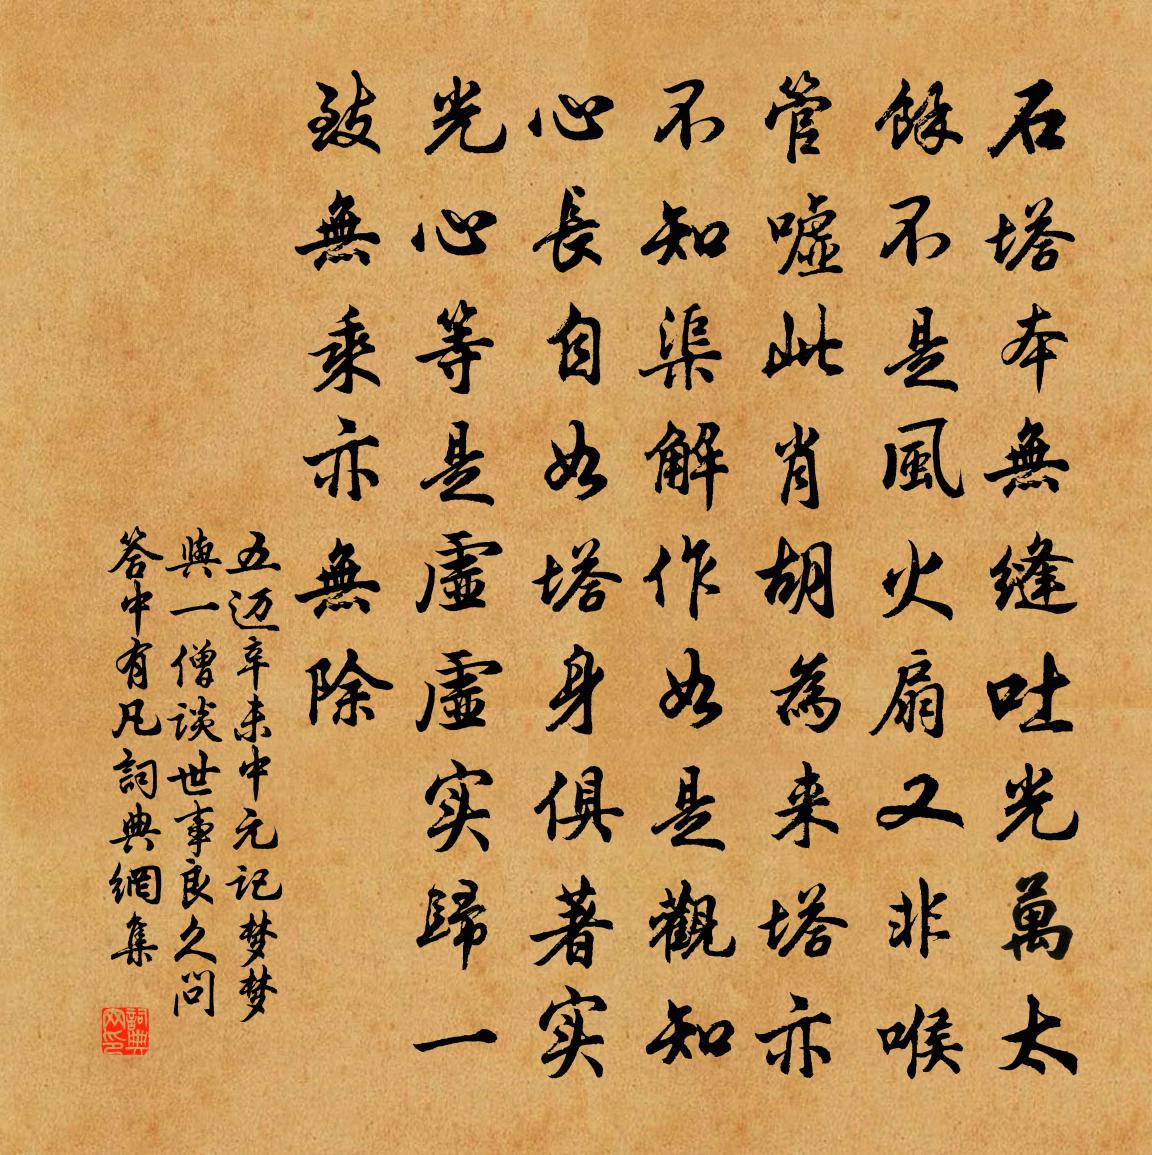 石塔本無縫吐光萬太
餘不是風火扇又非喉
管噓此肖胡為来塔亦
不知渠解作如是觀知
心長自如塔身俱著实
光心等是虛虛实歸一
致無乘亦無除
五迈辛未中元记梦梦
與一僧谈世事良久问
答中有凡詞典網集
詞典